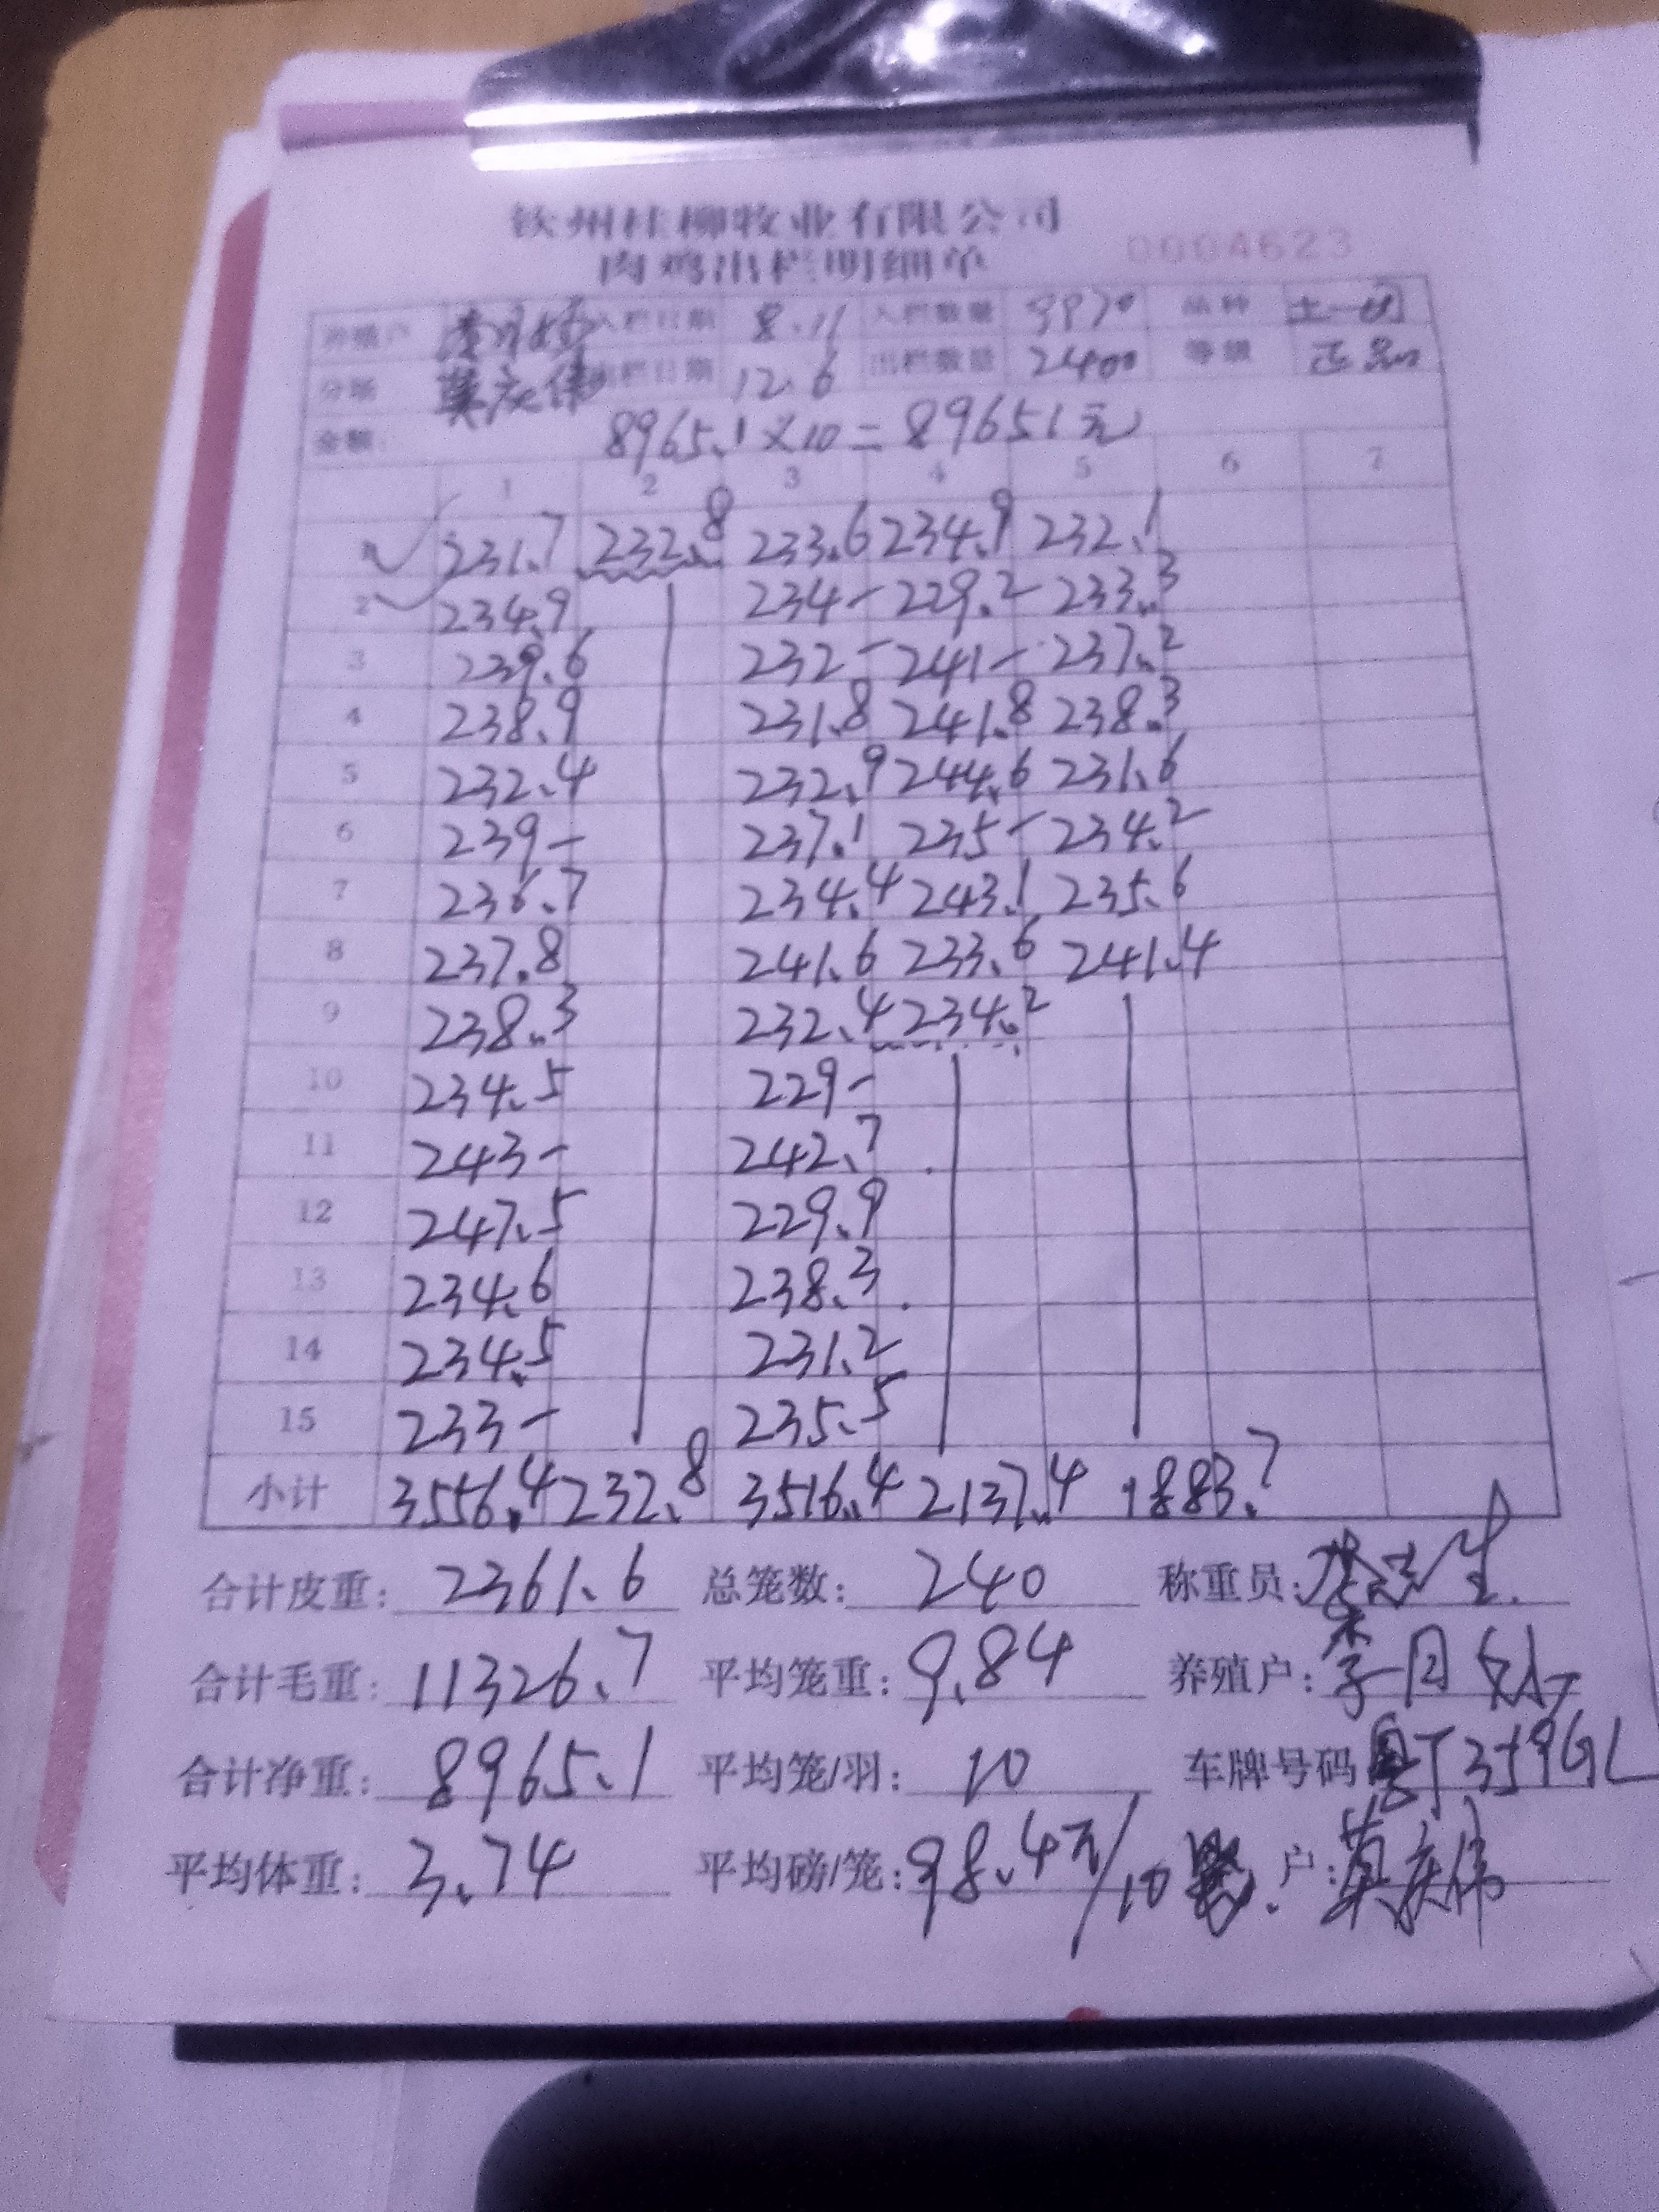 钦州桂柳牧业有限公司
肉鸡出栏明细单 0004623
养殖户 入栏日期 8.11 入栏数量 9970 品种 土一
分场 莫庆伟 出栏日期 12.6 出栏数量 2400 等级 正品
金额: 8965.1×10=89651元
1 2 3 4 5 6 7
1 231.7 232.8 233.6 234.9 232.1
2 234.9 234- 229.2 233.3
3 239.6 232- 241- 237.2
4 238.9 231.8 241.8 238.3
5 232.4 232.9 244.6 231.6
6 239- 237.1 235- 234.2
7 236.7 234.4 243.1 235.6
8 237.8 241.6 233.6 241.4
9 238.3 232.4 234.2
10 234.5 229-
11 243- 242.7
12 247.5 229.9
13 234.6 238.3
14 234.5 231.2
15 233- 235.5
小计 3556.4 232.8 3516.4 2137.4 1883.7
合计皮重: 2361.6 总笼数: 240 称重员:
合计毛重: 11326.7 平均笼重: 9.84 养殖户: 李月
合计净重: 8965.1 平均笼/羽: 10 车牌号码 粤T359GL
平均体重: 3.74 平均磅/笼: 98.4元/10 户: 莫庆伟